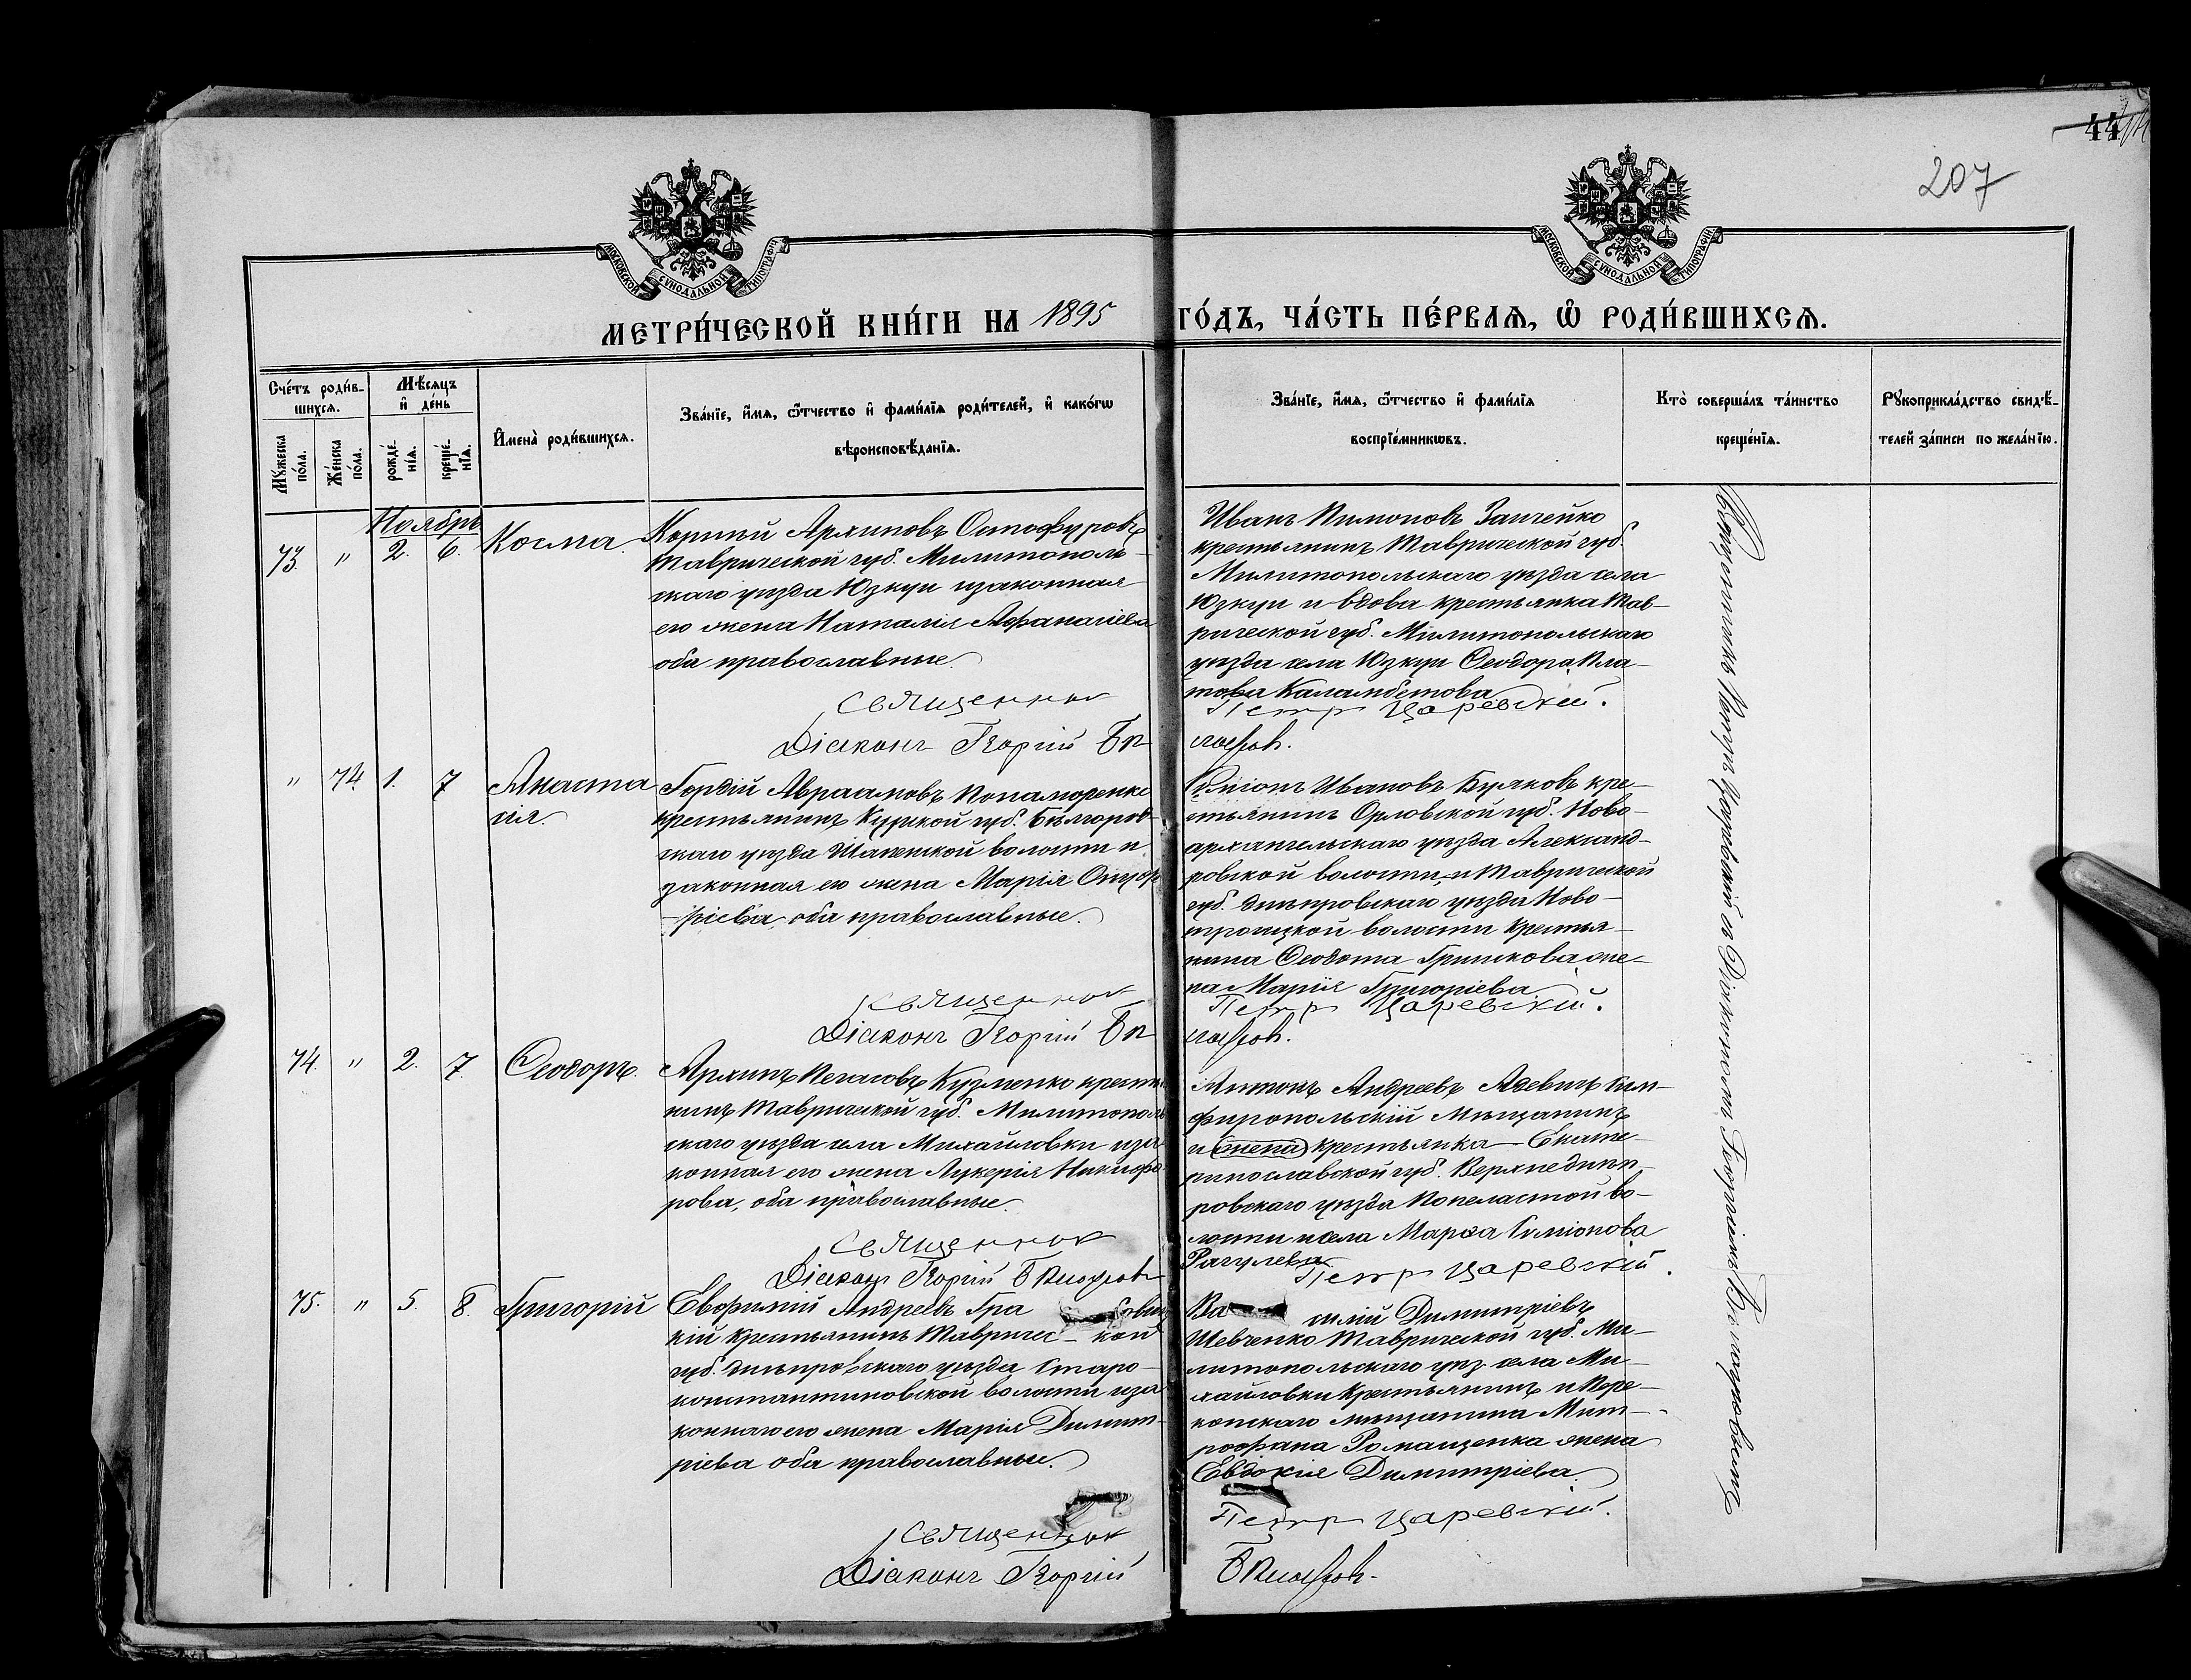 44
207
МОСКОВСКОЙ СѴНОДАЛЬНОЙ ТИПОГРАФІИ
МОСКОВСКОЙ СѴНОДАЛЬНОЙ ТИПОГРАФІИ
МЕТРИ́ЧЕСКОЙ КНИ́ГИ НА 1895 ГО́ДЪ, ЧА́СТЬ ПЕ́РВАѦ, Ѡ҆ РОДИ́ВШИХСѦ.
Сче́тъ роди́в-
шихсѧ.
Мꙋ́жеска по́ла.
Же́нска по́ла.
Мѣ́сѧцъ и҆ де́нь
рожде́-нїѧ.
креще́-нїѧ.
И҆мена̀ роди́вшихсѧ.
Зва́нїе, и҆́мѧ, ѻ҆́тчество и҆ фами́лїѧ роди́телей, и҆ како́гѡ
вѣроисповѣ́данїѧ.
Зва́нїе, и҆́мѧ, ѻ҆́тчество и҆ фами́лїѧ
воспрїе́мникѡвъ.
Кто̀ соверша́лъ та́инство
креще́нїѧ.
Рꙋкоприкла́дство свидѣ́-
телей за́писи по жела́нїю.
Ноябрь
73. " 2. 6. Косма.
Архиповъ
Таврической губ. Милитополь-
скаго уѣзда Юзкуи изаконная
его жена Наталія Афанасіева
оба православные.
Священник
Діаконъ Георгій
Иванъ
крестьянинъ Таврической губ.
Милитопольскаго уѣзда села
Юзкуи и вдова крестьянка Тав-
рической губ. Милитопольскаго
уѣзда села Юзкуи Ѳеодора Пла-
това Каламбетова
Петр Царевский.
" 74. 1. 7 Анаста
сія.
Гордій Авраамовъ Понаморенко
крестьянинъ Курской губ. Бѣлгород-
скаго уѣзда волости и
законная его жена Марія
-ріева, оба православные.
Священник
Діаконъ Георгій
Ивановъ Буяковъ кре-
стьянинъ Орловской губ. Ново-
архангельскаго уѣзда Александ-
ровской волости, и Таврической
губ. Днѣпровскаго уѣзда Ново-
троицкой волости крестья-
нина Ѳеодота Гришкова же-
на Марія Григоріева
Петр Царевский.
74. " 2. 7. Ѳеодоръ.
Архипъ Кузменко крестья
нинъ Таврической губ. Милитополь
скаго уѣзда села Михайловки иза
конная его жена Лукерія Никифо
рова, оба православные.
Священник
Діаконъ Георгій
Антонъ Андреевъ Сим-
фиропольскій Мѣщанинъ
и (жена) крестьянка Екате-
ринославской губ. Верхнеднѣп-
ровскаго уѣзда во-
лости села Марѳа Симіонова
Петр Царевский.
75. " 5. 8. Григорій
Евфимій Андреевъ Гра
кій крестьянинъ Тавричес-кой
губ. Днѣпровскаго уѣзда Старо-
константиновской волости иза
конная его жена Марія Димит-
ріева оба православные.
Священник
Діаконъ Георгій
Ва силій Димитріевъ
Шевченко Таврической губ. Ми-
литопольскаго уѣз села Ми-
хайловки крестьянинъ и Пере-
копскаго мѣщанина Мит-
рофана Романценка жена
Евдокія Димитріева.
Петр Царевский.
Священникъ Петръ Царевскій съ Діакономъ Георгіемъ